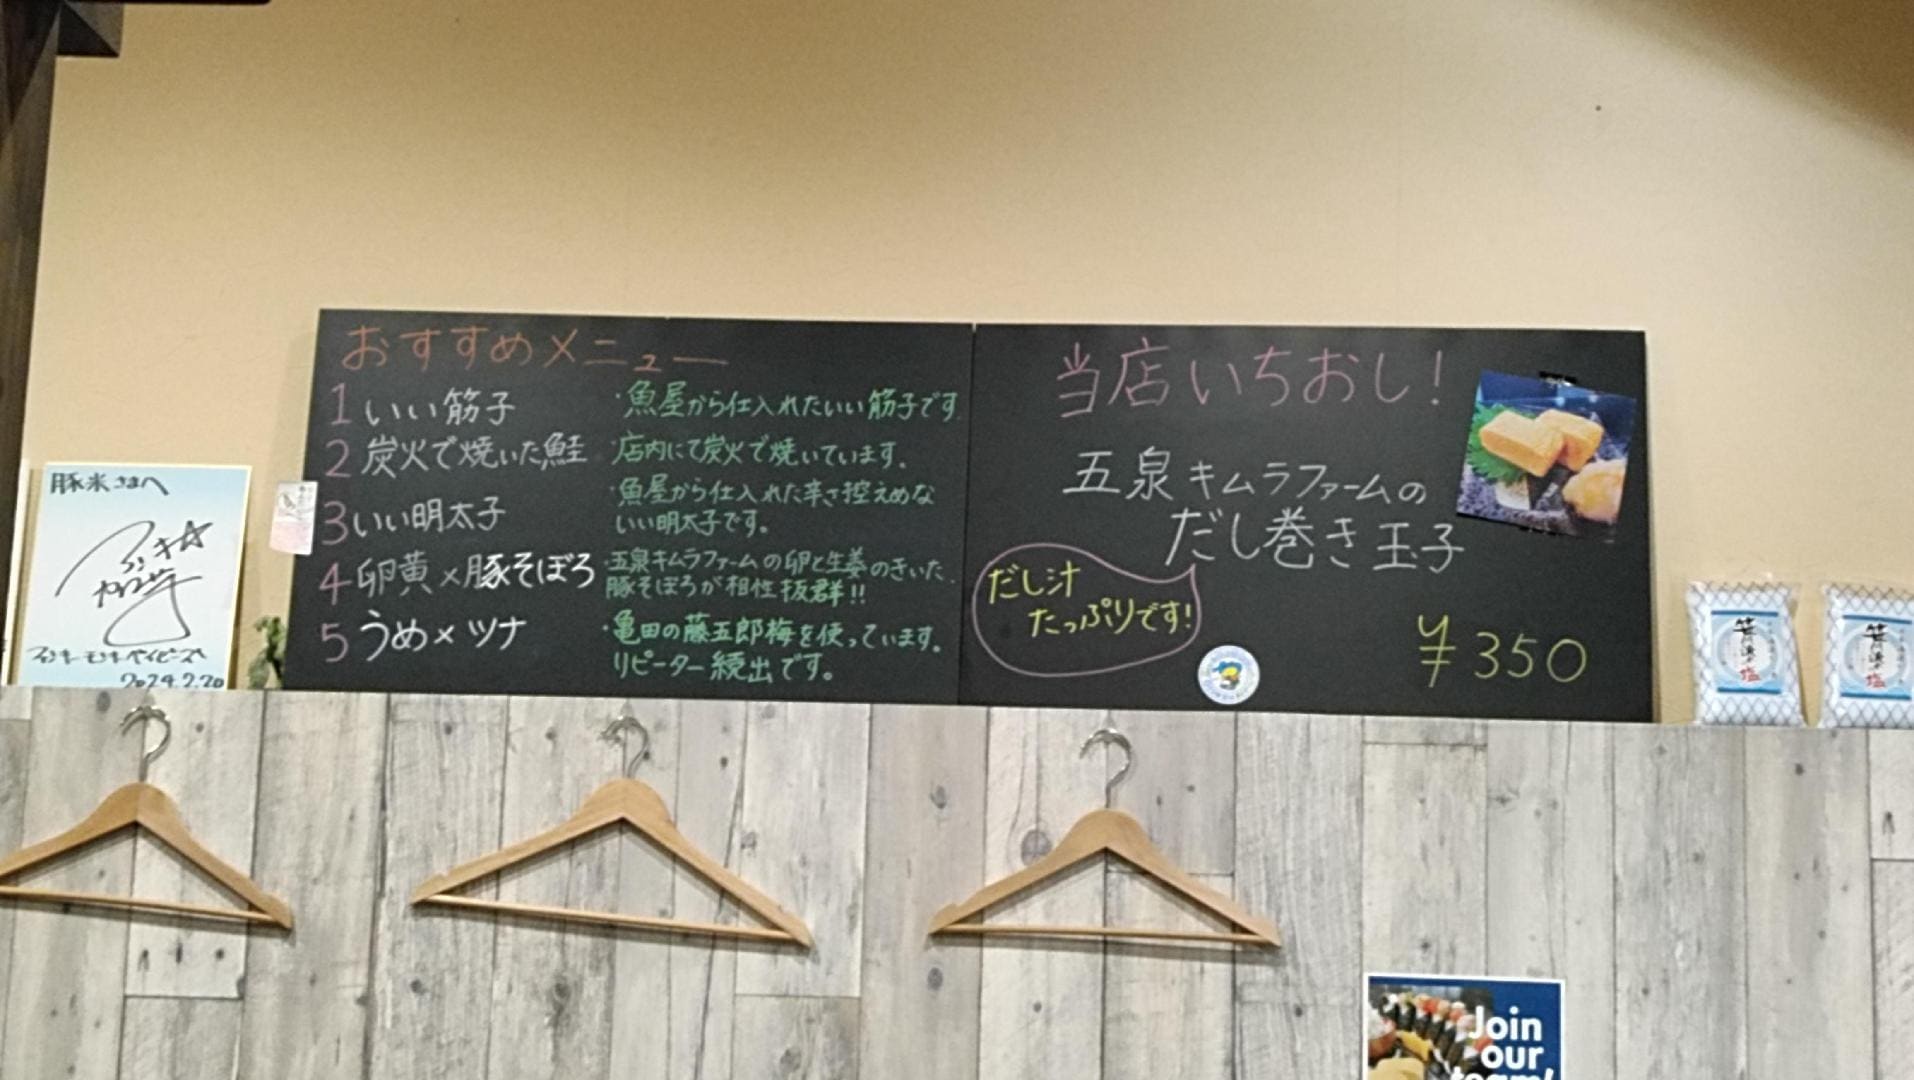 おすすめメニュー
1 いい筋子
・魚屋から仕入れたいい筋子です.
2 炭火で焼いた鮭
・店内にて炭火で焼いています。
3 いい明太子
・魚屋から仕入れた辛さ控えめな
いい明太子です。
4 卵黄×豚そぼろ
・五泉キムラファームの卵と生姜のきいた.
豚そぼろが相性抜群!!
5 うめ×ツナ
・亀田の藤五郎梅を使っています。
リピーター続出です。
当店いちおし!
五泉キムラファームの
だし巻き玉子
だし汁
たっぷりです!
¥350
豚米さまへ
ファンキーモンキーベイビーズ
2024.2.20
笹川流れの塩
笹川流れの塩
Join
our
team!